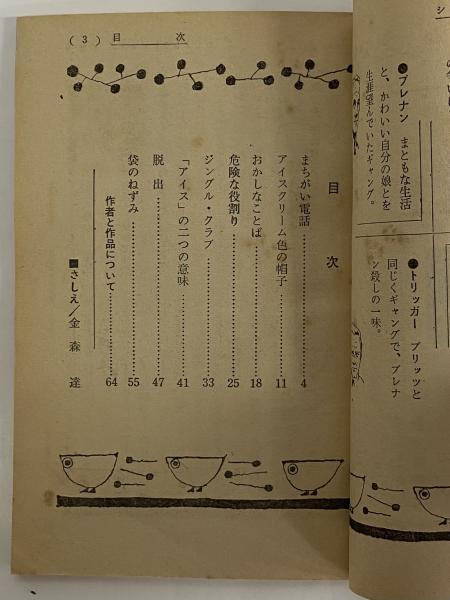 (3) 目次
目次
まちがい電話……4
アイスクリーム色の帽子……11
おかしなことば……18
危険な役割り……25
ジングル・クラブ……33
「アイス」の二つの意味……41
脱出……47
袋のねずみ……55
作者と作品について……64
■さしえ/金森達
●ブレナン まともな生活
と、かわいい自分の娘とを
生涯望んでいたギャング。
●トリッガー ブリッツと
同じくギャングで、ブレナ
ン殺しの一味。